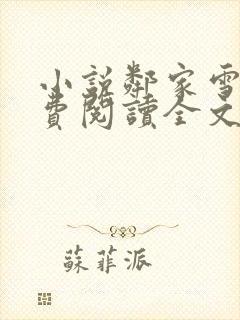 小説鄰家雪
費閱讀全文
蘇菲派